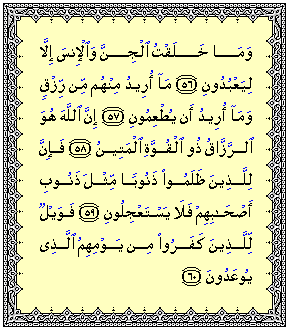 وَمَا خَلَقْتُ ٱلْجِنَّ وَٱلْإِنسَ إِلَّا
لِيَعْبُدُونِ ٥٦ مَآ أُرِيدُ مِنْهُم مِّن رِّزْقٍ
وَمَآ أُرِيدُ أَن يُطْعِمُونِ ٥٧ إِنَّ ٱللَّهَ هُوَ
ٱلرَّزَّاقُ ذُو ٱلْقُوَّةِ ٱلْمَتِينُ ٥٨ فَإِنَّ
لِلَّذِينَ ظَلَمُوا۟ ذَنُوبًا مِّثْلَ ذَنُوبِ
أَصْحَـٰبِهِمْ فَلَا يَسْتَعْجِلُونِ ٥٩ فَوَيْلٌ
لِّلَّذِينَ كَفَرُوا۟ مِن يَوْمِهِمُ ٱلَّذِى
يُوعَدُونَ ٦٠